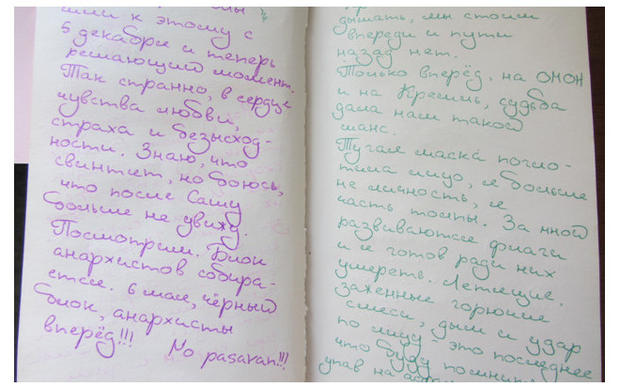 шли к этому с
5 декабря и теперь
решающий момент.
Так странно, в сердце
чувства любви,
страха и безысход-
ности. Знаю, что
свинтят, но боюсь,
что после Сашу
больше не увижу.
Посмотрим. Блок
анархистов собира-
ется. 6 мая, чёрный
блок, анархисты
вперёд!!! No pasaran!!!
дышать, мы стоим
впереди и пути
назад нет.
Только вперёд, на ОМОН
и на Кремль, судьба
дала нам такой
шанс.
Тугая маска погло-
тила лицо, я больше
не личность, я
часть толпы. За мной
развиваются флаги
и я готов ради них
умереть. Летящие,
горючие
смеси, дым и удар
по лицу это последнее
что буду помнить
упав на